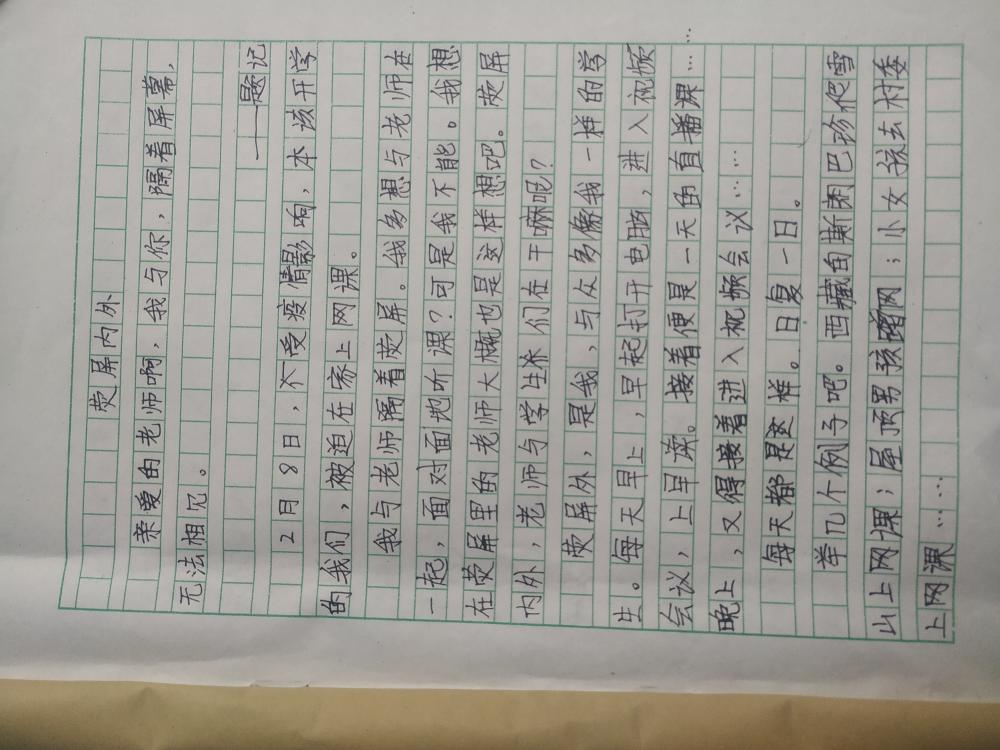 荧屏内外
亲爱的老师啊，我与你，隔着屏幕，
无法相见。
——题记
2月8日，受疫情影响，本该开学
的我们，被迫在家上网课。
我与老师隔着荧屏。我多想与老师在
一起，面对面地听课？可是我不能。我想
在荧屏里的老师大概也是这样想吧。荧屏
内外，老师与学生们在干嘛呢？
荧屏外，是我，与众多像我一样的学
生。每天早上，早起打开电脑，进入视频
会议，上早读。接着便是一天的直播课……
晚上，又得接着进入视频会议……
每天都是这样。日复一日。
举几个例子吧。西藏自斯朗巴珍爬雪
山上网课；屋顶男孩蹭网；小女孩去村委
上网课……